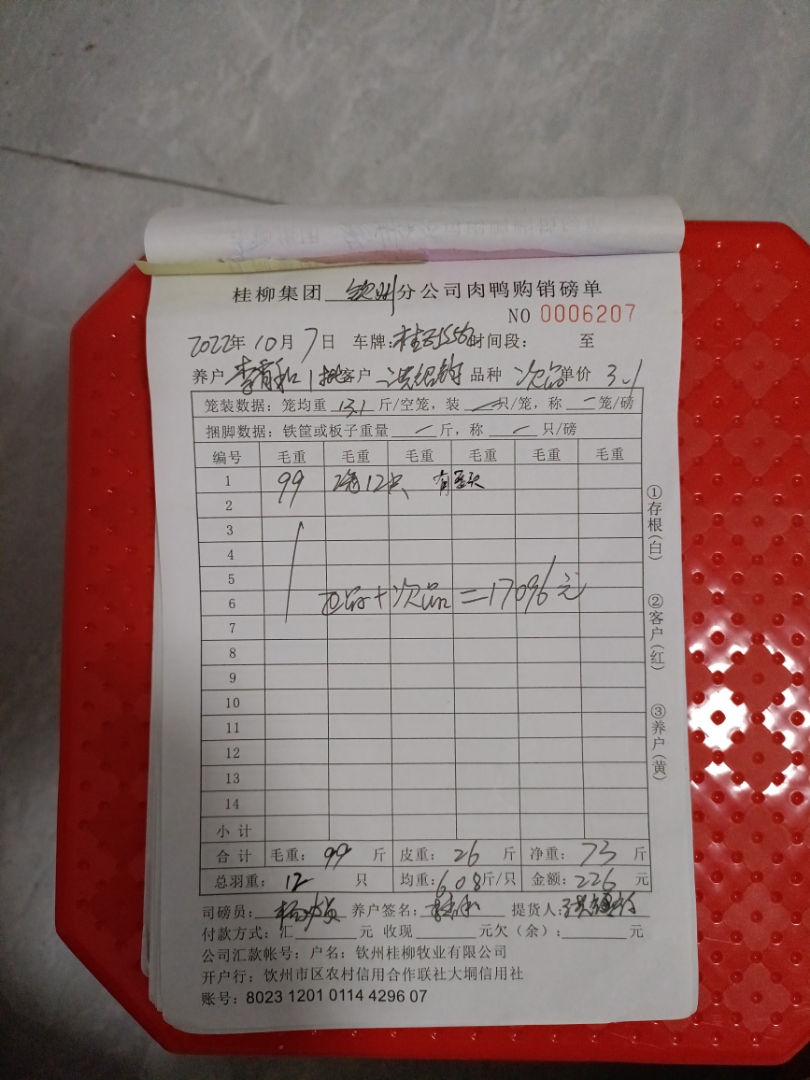 桂柳集团 钦州 分公司肉鸭购销磅单
NO 0006207
2022年 10月 7日 车牌: 时间段: 至
养户 李青和 1批客户 洪绍钧 品种 次品 单价 3.1
笼装数据: 笼均重 13.1 斤/空笼, 装 一 只/笼, 称 一 笼/磅
捆脚数据: 铁筐或板子重量 一 斤, 称 一 只/磅
编号 毛重 毛重 毛重 毛重 毛重 毛重
1 99 2笼12只
2
3
4
5
6 正品+次品=17096元
7
8
9
10
11
12
13
14
小计
合计 毛重: 99 斤 皮重: 26 斤 净重: 73 斤
总羽重: 12 只 均重: 6.08斤/只 金额: 226 元
司磅员: 养户签名: 提货人:
付款方式: 汇 元 收现 元欠(余): 元
公司汇款帐号: 户名: 钦州桂柳牧业有限公司
开户行: 钦州市区农村信用合作联社大垌信用社
账号: 8023 1201 0114 4296 07
①存根(白)
②客户(红)
③养户(黄)